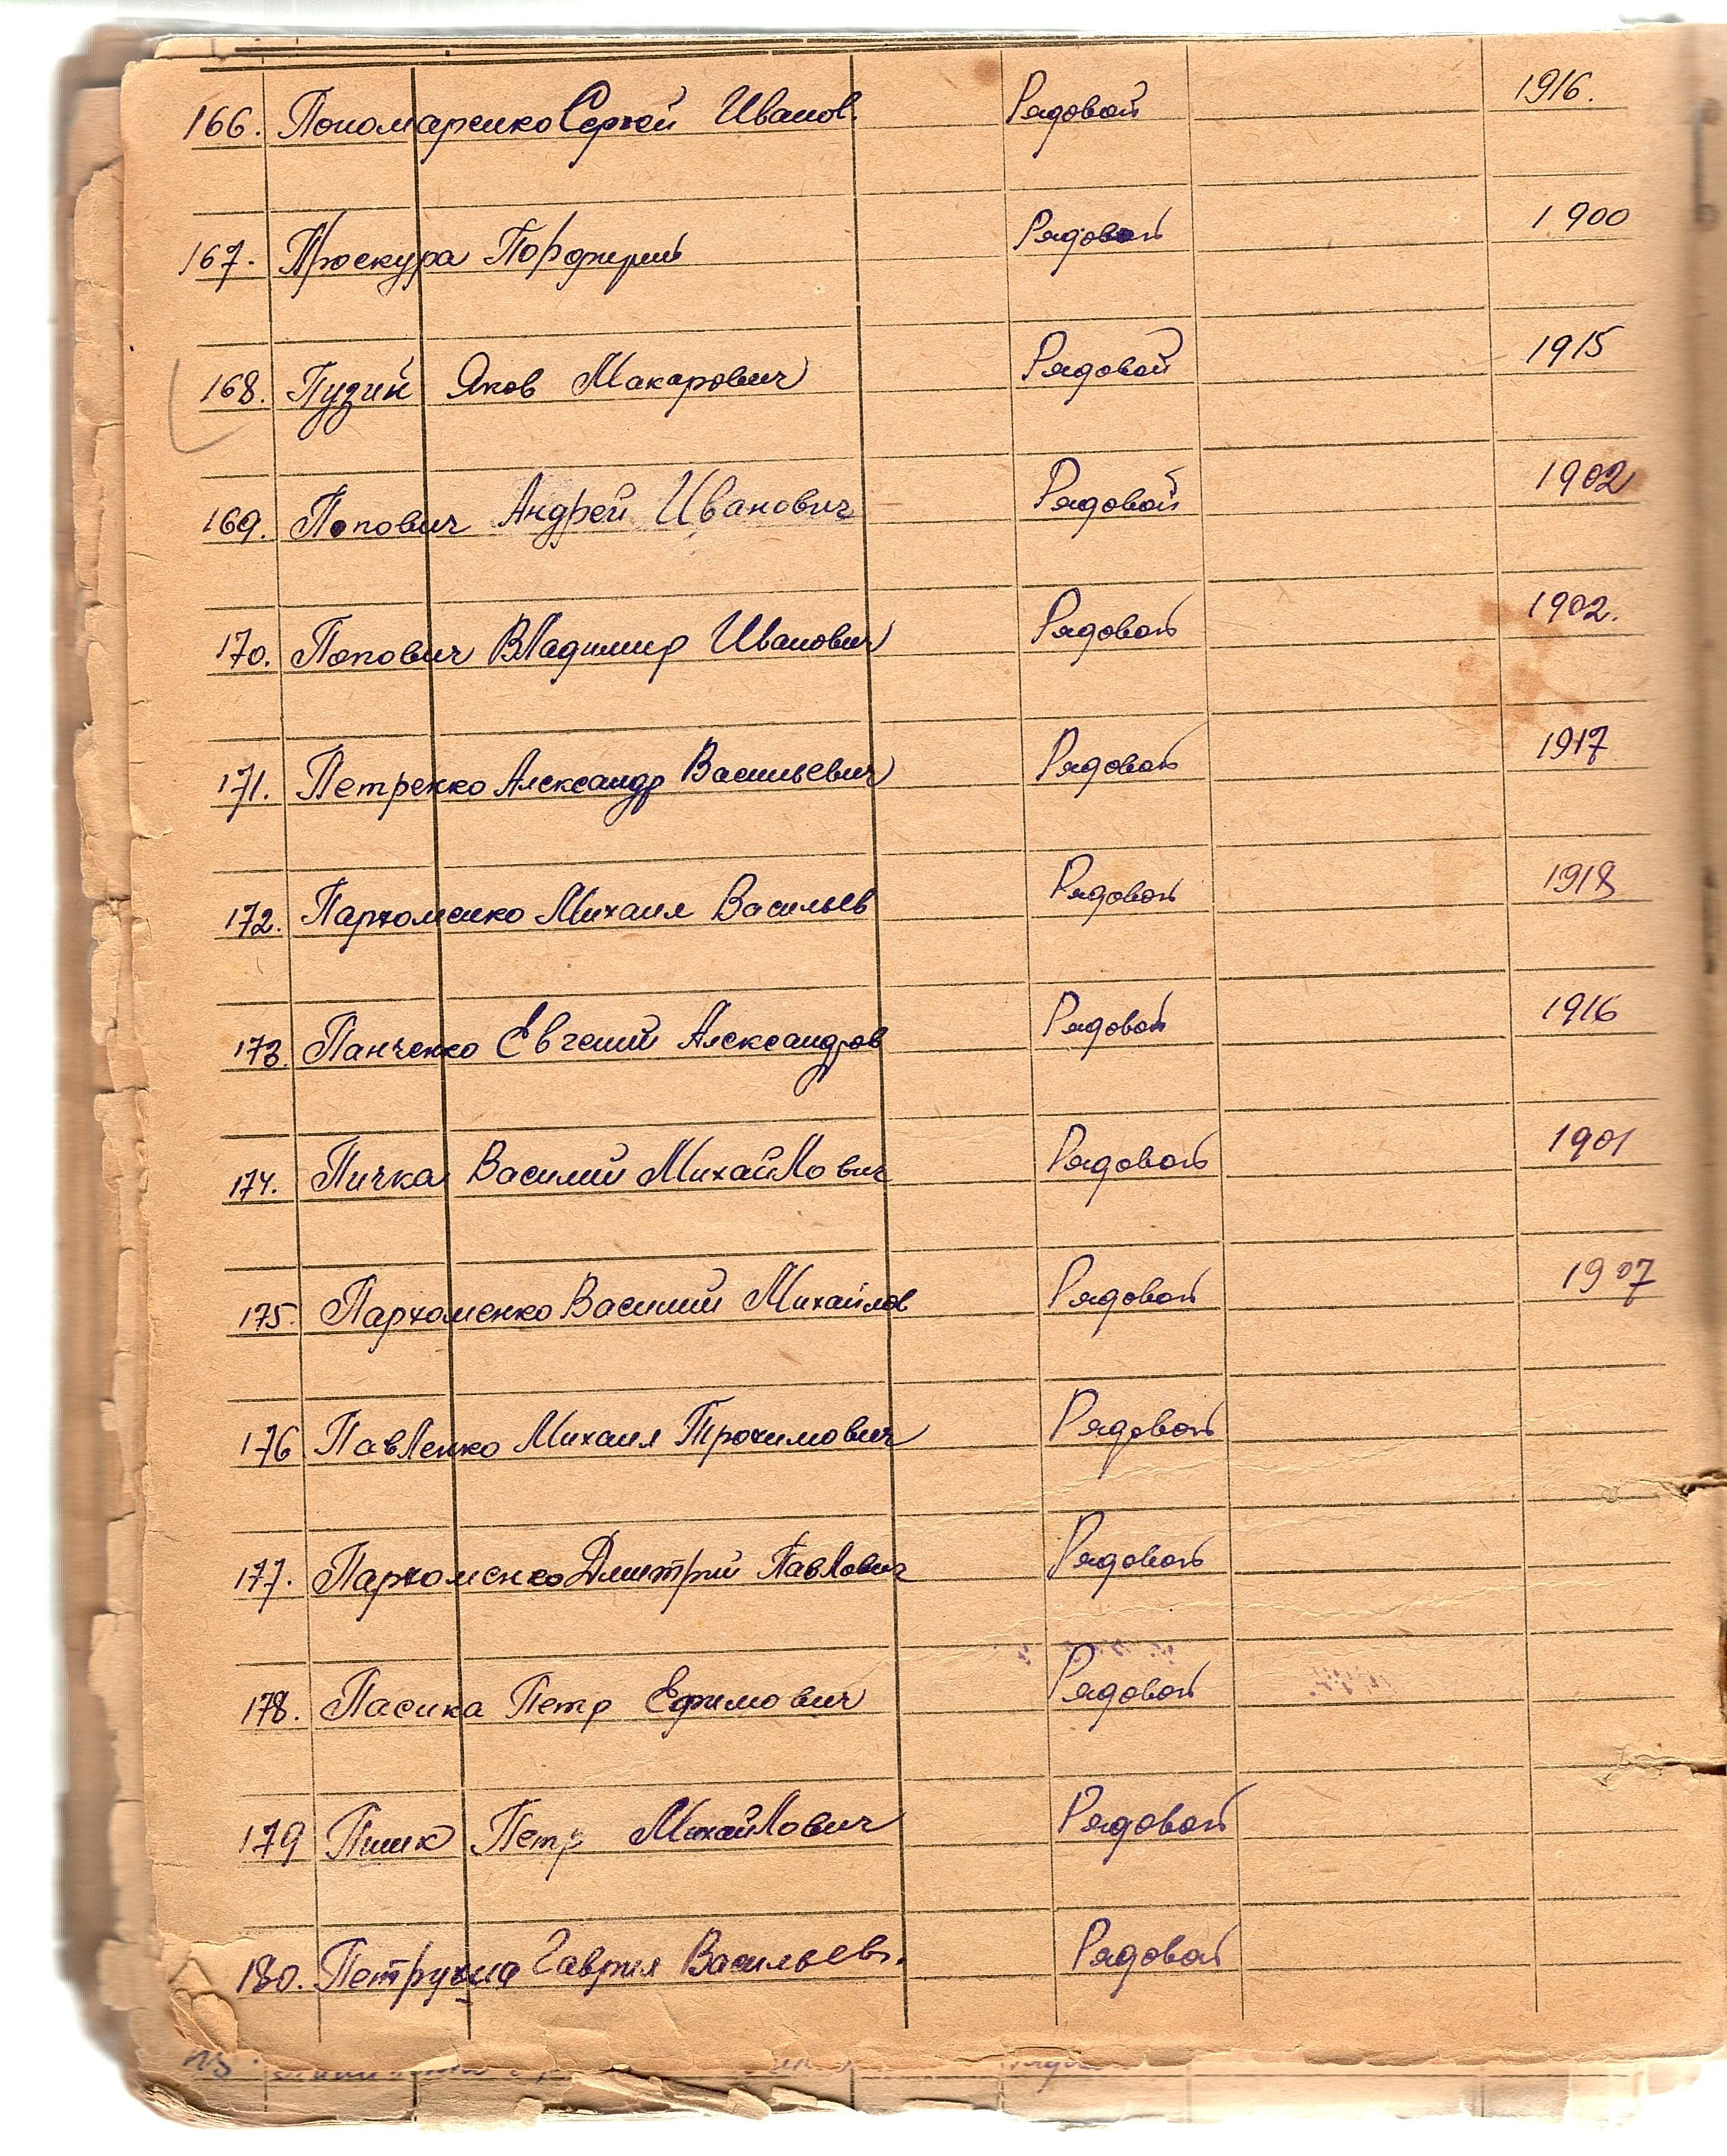 166. Пономаренко Сергей Иванов. Рядовой 1916.
167. Проскура Порфирий Рядовой 1900
168. Пузий Яков Макарович Рядовой 1915
169. Попович Андрей Иванович Рядовой 1902
170. Попович Владимир Иванович Рядовой 1902.
171. Петренко Александр Васильевич Рядовой 1917
172. Пархоменко Михаил Васильев Рядовой 1918
173. Панченко Евгений Александров Рядовой 1916
174. Пичка Василий Михайлович Рядовой 1901
175. Пархоменко Василий Михайлов Рядовой 1907
176 Павленко Михаил Трохимович Рядовой
177. Пархоменко Дмитрий Павлович Рядовой
178. Пасика Петр Ефимович Рядовой
179 Пшик Петр Михайлович Рядовой
180. Петрухна Гаврил Васильев. Рядовой